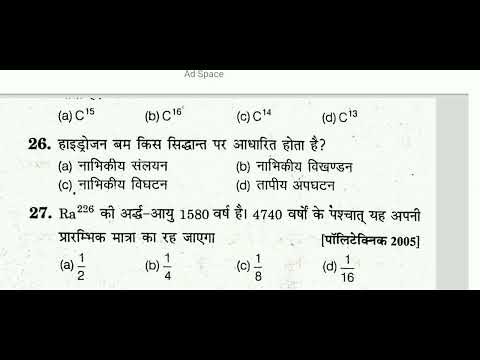 Ad Space
(a) C¹⁵ (b) C¹⁶ (c) C¹⁴ (d) C¹³
26. हाइड्रोजन बम किस सिद्धान्त पर आधारित होता है?
(a) नाभिकीय संलयन (b) नाभिकीय विखण्डन
(c) नाभिकीय विघटन (d) तापीय अपघटन
27. Ra²²⁶ की अर्द्ध-आयु 1580 वर्ष है। 4740 वर्षों के पश्चात् यह अपनी
प्रारम्भिक मात्रा का रह जाएगा [पॉलिटेक्निक 2005]
(a) 1/2 (b) 1/4 (c) 1/8 (d) 1/16